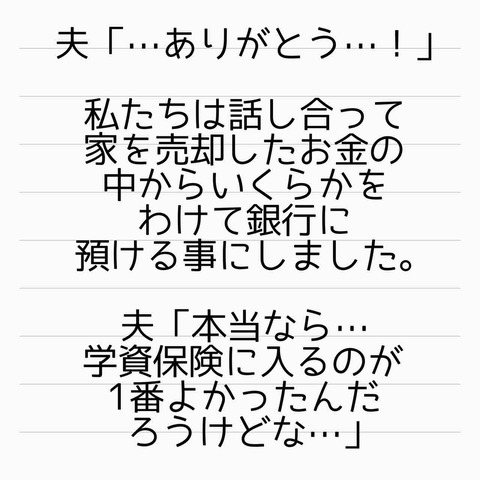 夫「…ありがとう…！」
私たちは話し合って
家を売却したお金の
中からいくらかを
わけて銀行に
預ける事にしました。
夫「本当なら…
学資保険に入るのが
1番よかったんだ
ろうけどな…」